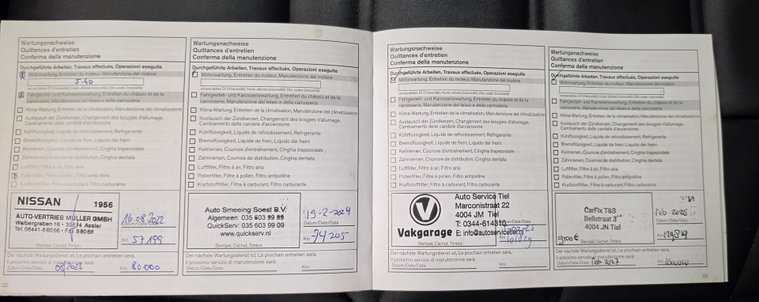 Wartungsnachweise
Quittances d'entretien
Conferma della manutenzione
Durchgeführte Arbeiten, Travaux effectués, Operazioni eseguite
Motorwartung, Entretien du moteur, Manutenzione del motore
5-40
Fahrgestell- und Karosseriewartung, Entretien du châssis et de la carrosserie, Manutenzione del telaio e della carrozzeria
Klima Wartung, Entretien de la climatisation, Manutenzione del climatizzatore
Austausch der Zündkerzen, Changement des bougies d'allumage,
Cambiamento delle candele d'accensione
Kühlflüssigkeit, Liquide de refroidissement, Refrigerante
Bremsflüssigkeit, Liquide de frein, Liquido dei freni
Keilriemen, Courroie d'entraînement, Cinghia trapezoidale
Zahnriemen, Courroie de distribution, Cinghia dentata
Luftfilter, Filtre à air, Filtro aria
Pollenfilter, Filtre à pollen, Filtro antipolline
Kraftstofffilter, Filtre à carburant, Filtro carburante
NISSAN 1956
AUTO-VERTRIEB MÜLLER GMBH
16.08.2022
Datum/Date/Data
Km 57199
Stempel, Cachet, Timbro
Der nächste Wartungsdienst ist, Le prochain entretien sera,
Il prossimo servizio di manutenzione sarà:
Datum/Date/Data Km 80.000
22
Wartungsnachweise
Quittances d'entretien
Conferma della manutenzione
Durchgeführte Arbeiten, Travaux effectués, Operazioni eseguite
Motorwartung, Entretien du moteur, Manutenzione del motore
Fahrgestell- und Karosseriewartung, Entretien du châssis et de la carrosserie, Manutenzione del telaio e della carrozzeria
Klima Wartung, Entretien de la climatisation, Manutenzione del climatizzatore
Austausch der Zündkerzen, Changement des bougies d'allumage,
Cambiamento delle candele d'accensione
Kühlflüssigkeit, Liquide de refroidissement, Refrigerante
Bremsflüssigkeit, Liquide de frein, Liquido dei freni
Keilriemen, Courroie d'entraînement, Cinghia trapezoidale
Zahnriemen, Courroie de distribution, Cinghia dentata
Luftfilter, Filtre à air, Filtro aria
Pollenfilter, Filtre à pollen, Filtro antipolline
Kraftstofffilter, Filtre à carburant, Filtro carburante
Auto Smeeing Soest B.V.
Algemeen: 035 603
QuickServ: 035 603 99 09
www.quickserv.nl
19-2-2024
Datum/Date/Data
Km 74205
Stempel, Cachet, Timbro
Der nächste Wartungsdienst ist, Le prochain entretien sera,
Il prossimo servizio di manutenzione sarà:
Datum/Date/Data Km
Wartungsnachweise
Quittances d'entretien
Conferma della manutenzione
Durchgeführte Arbeiten, Travaux effectués, Operazioni eseguite
Motorwartung, Entretien du moteur, Manutenzione del motore
Fahrgestell- und Karosseriewartung, Entretien du châssis et de la carrosserie, Manutenzione del telaio e della carrozzeria
Klima Wartung, Entretien de la climatisation, Manutenzione del climatizzatore
Austausch der Zündkerzen, Changement des bougies d'allumage,
Cambiamento delle candele d'accensione
Kühlflüssigkeit, Liquide de refroidissement, Refrigerante
Bremsflüssigkeit, Liquide de frein, Liquido dei freni
Keilriemen, Courroie d'entraînement, Cinghia trapezoidale
Zahnriemen, Courroie de distribution, Cinghia dentata
Luftfilter, Filtre à air, Filtro aria
Pollenfilter, Filtre à pollen, Filtro antipolline
Kraftstofffilter, Filtre à carburant, Filtro carburante
Vakgarage
Auto Service Tiel
Marconistraat 22
4004 JM Tiel
T: 0344-614310
Stempel, Cachet, Timbro
Der nächste Wartungsdienst ist, Le prochain entretien sera,
Il prossimo servizio di manutenzione sarà:
Datum/Date/Data Km
Wartungsnachweise
Quittances d'entretien
Conferma della manutenzione
Durchgeführte Arbeiten, Travaux effectués, Operazioni eseguite
Motorwartung, Entretien du moteur, Manutenzione del motore
Fahrgestell- und Karosseriewartung, Entretien du châssis et de la carrosserie, Manutenzione del telaio e della carrozzeria
Klima Wartung, Entretien de la climatisation, Manutenzione del climatizzatore
Austausch der Zündkerzen, Changement des bougies d'allumage,
Cambiamento delle candele d'accensione
Kühlflüssigkeit, Liquide de refroidissement, Refrigerante
Bremsflüssigkeit, Liquide de frein, Liquido dei freni
Keilriemen, Courroie d'entraînement, Cinghia trapezoidale
Zahnriemen, Courroie de distribution, Cinghia dentata
Luftfilter, Filtre à air, Filtro aria
Pollenfilter, Filtre à pollen, Filtro antipolline
Kraftstofffilter, Filtre à carburant, Filtro carburante
CarFix T&S
4004 JN Tiel
Datum/Date/Data
Stempel, Cachet, Timbro
Der nächste Wartungsdienst ist, Le prochain entretien sera,
Il prossimo servizio di manutenzione sarà:
Datum/Date/Data Feb 2027 Km
23